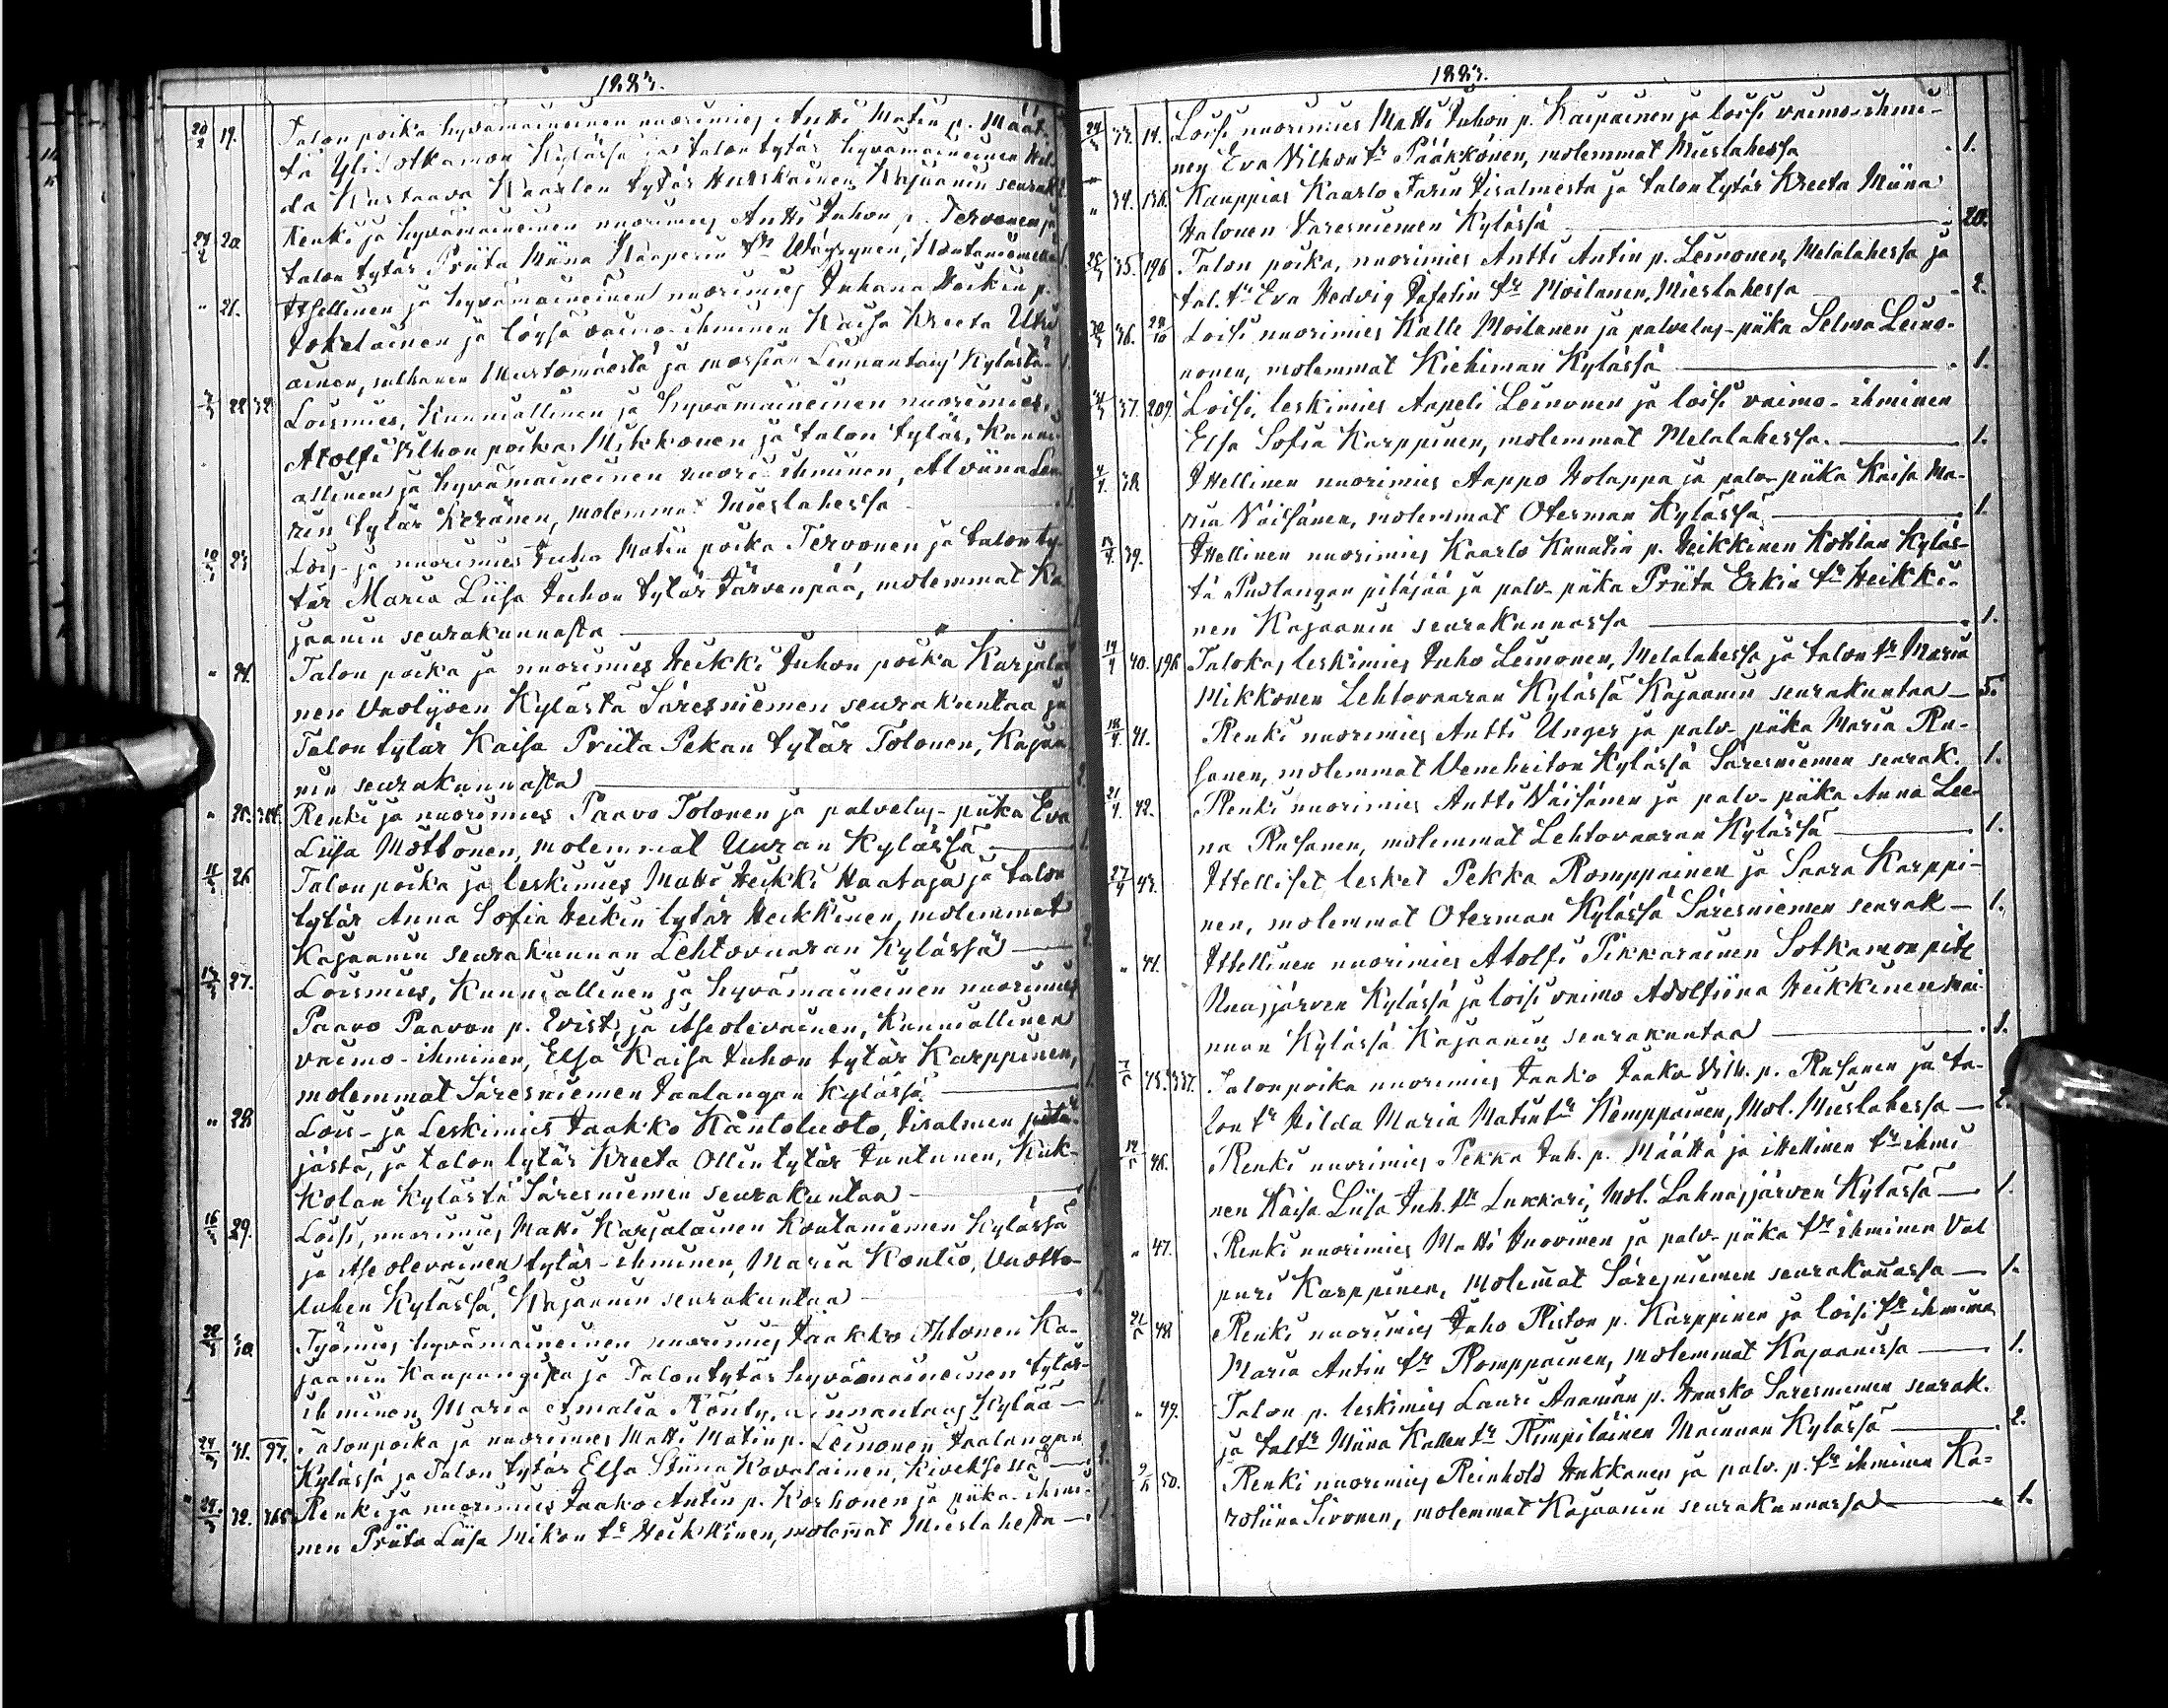 1883.
20/2 19. Talon poika hyvämaineinen nuorimies Antti Matin p. Määt-
tä Ylisotkamon Kylässä ja talon tytär hyvämaineinen Hil-
da Kustaava Kaarlon tytär Huuskainen, Kajaanin seurak.
24/2 20. Renki ja hyvämaineinen nuorimies Antti Juhon p. Tervonen ja
talon tytär Priita Miina Kaaperin tr Väyrynen, Koutaniemellä 1.
" 21. Itsellinen ja hyvämaineinen nuorimies Juhana Heikin p.
Jokelainen ja löysä vaimo-ihminen Kaisa Kreeta
ainen, sulhanen Murtomäestä ja morsian Linnantaus Kylästä 1.
22 Loismies, Kunniallinen ja hyvämaineinen nuorimies,
Atolfi Vilhon poika Mikkonen ja talon tytär, Kunni-
allinen ja hyvämaineinen nuori ihminen, Alviina Lau-
rin tytär Keränen, molemmat Mieslahessa 1.
10/3 23 Lois- ja nuorimies Juho Matin poika Tervonen ja talon ty-
tär Maria Liisa Juhon tytär Järvenpää, molemmat Ka-
jaanin seurakunnasta
" 24. Talon poika ja nuorimies Heikki Juhon poika Karjalai-
nen Vuolijoen Kylästä Säresniemen seurakuntaa ja
Talon tytär Kaisa Priita Pekan tytär Tolonen, Kajaa-
nin seurakunnasta 2.
" 25. Renki ja nuorimies Paavo Tolonen ja palvelus-piika Eva
Liisa Möttönen, molemmat Uuran Kylässä 1.
11/3 26 Talon poika ja leskimies Matti Heikki Haataja ja talon
tytär Anna Sofia Heikin tytär Heikkinen, molemmat
Kajaanin seurakunnan Lehtovaaran Kylässä 2.
27. Loismies, Kunniallinen ja hyvämaineinen nuorimies
Paavo Paavon p. Evist, ja itseolevainen, Kunniallinen
vaimo-ihminen, Elsa Kaisa Juhon tytär Karppinen,
molemmat Säresniemen Jaalangan Kylässä 1.
" 28 Lois- ja Leskimies Jaakko Käntoluoto, Iisalmen pitä-
jästä, ja talon tytär Kreeta Ollin tytär Juntunen, Kuk-
kolan Kylästä Säresniemen seurakuntaa 1.
16/3 29. Loisi, nuorimies Matti Karjalainen Koutaniemen Kylässä
ja itse olevainen tytär-ihminen, Maria Kontio, Vuotto-
lahen Kylässä, Kajaanin seurakuntaa 1.
30 Työmies hyvämaineinen nuorimies Jaakko Ihtonen Ka-
jaanin Kaupungista ja Talon tytär hyvämaineinen tytär-
ihminen, Maria Amalia Könty, Linnantaus Kylää 1.
24/3 31. 97. Talonpoika ja nuorimies Matti Matin p. Leinonen Jaalangan
Kylässä ja Talon tytär Elsa Stiina Kovalainen, Kiveksessä 2.
24/3 32. 365 Renki ja nuorimies Jaako Antin p. Korhonen ja piika-ihmi-
nen Priita Liisa Mikon tr Heikkinen, molemat Mieslahesta 1.
1883.
24/3 33. 14. Loisi nuorimies Matti Juhon p. Kaipainen ja loisi vaimo-ihmi-
nen Eva Vilhon tr Pääkkönen, molemmat Mieslahessa 1.
" 34. 136. Kauppias Kaarlo Farin Iisalmesta ja talon tytär Kreeta Miina
Halonen Säresniemen Kylässä 20.
25/3 35. 196 Talon poika, nuorimies Antti Antin p. Leinonen, Melalahessa ja
tal. tr Eva Hedvig Jafetin tr Moilanen, Mieslahessa 2.
30/3 36. Loisi nuorimies Kalle Moilanen ja palvelus-piika Selma Leino-
nonen, molemmat Kiehiman Kylässä 1.
31/3 37. 209. Loisi, leskimies Aapeli Leinonen ja loisi vaimo-ihminen
Elsa Sofia Karppinen, molemmat Melalahessa. 1.
4/4 38 Itellinen nuorimies Aappo Holappa ja palv-piika Kaisa Ma-
ria Väisänen, molemmat Oterman Kylässä 1.
39. Itellinen nuorimies Kaarlo Knuutin p. Heikkinen Kotilan Kyläs-
tä Puolangan pitäjää ja palv-piika Priita Erkin tr Heikki-
nen Kajaanin seurakunnassa 1.
14/4 40. 196 Taloka, leskimies Juho Leinonen, Melalahessa ja talon tr Maria
Mikkonen Lehtovaaran Kylässä Kajaanin seurakuntaa 5.
18/4 41. Renki nuorimies Antti Unger ja palv-piika Maria Ru-
sanen, molemmat Veneheiton Kylässä Säresniemen seurak. 1.
21/4 42. Renki nuorimies Antti Väisänen ja palv-piika Anna Lee-
na Rusanen, molemmat Lehtovaaran Kylässä 1.
27/4 43. Itelliset lesket Pekka Romppainen ja Saara Karppi-
nen, molemmat Oterman Kylässä Säresniemen seurak 1.
" 44. Itellinen nuorimies Atolfi Pikkarainen Sotkamon pitz
Nuasjärven Kylässä ja loisi vaimo Adolfiina Heikkinen Mai-
nuan Kylässä Kajaanin seurakuntaa 1.
7/5 45. 337. Talonpoika nuorimies Jaako Jaako Vilh. p. Rusanen ja ta-
lon tr Hilda Maria Matin tr Kemppainen, Mol. Mieslahessa 2.
12/5 46. Renki nuorimies Pekka Juh. p. Määttä ja itellinen tr ihmi-
nen Kaisa Liisa Juh. tr Lukkari, Mol. Lahnasjärven Kylässä 1.
" 47. Renki nuorimies Matti Inovinen ja palv-piika tr ihminen Val
puri Karppinen, molemat Säresniemen seurakunassa 1.
48 Renki nuorimies Juho Riston p. Karppinen ja loisi tr ihminen
Maria Antin tr Romppainen, molemmat Kajaanissa 1.
" 49. Talon p. leskimies Lauri Anaman p. Huusko Säresniemen seurak.
ja tal tr Miina Kallen tr Rimpiläinen Mainuan Kylässä 2.
50. Renki nuorimies Reinhold Hakkanen ja palv. p. tr ihminen Ka-
roliina Sivonen, molemmat Kajaanin seurakunnassa 1.